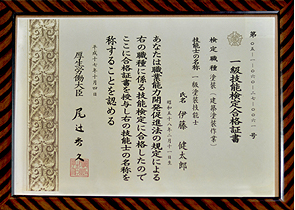 一級技能検定合格証書
検定職種 塗装(建築塗装作業)
技能士の名称 一級塗装技能士
氏名 伊藤 健太郎
昭和五十八年二月十一日生
あなたは職業能力開発促進法の規定による
右の職種に係る技能検定に合格したので
ここに合格証書を授与し右の技能士の名称を
称することを認める。
平成十七年十月四日
厚生労働大臣 尾辻秀久